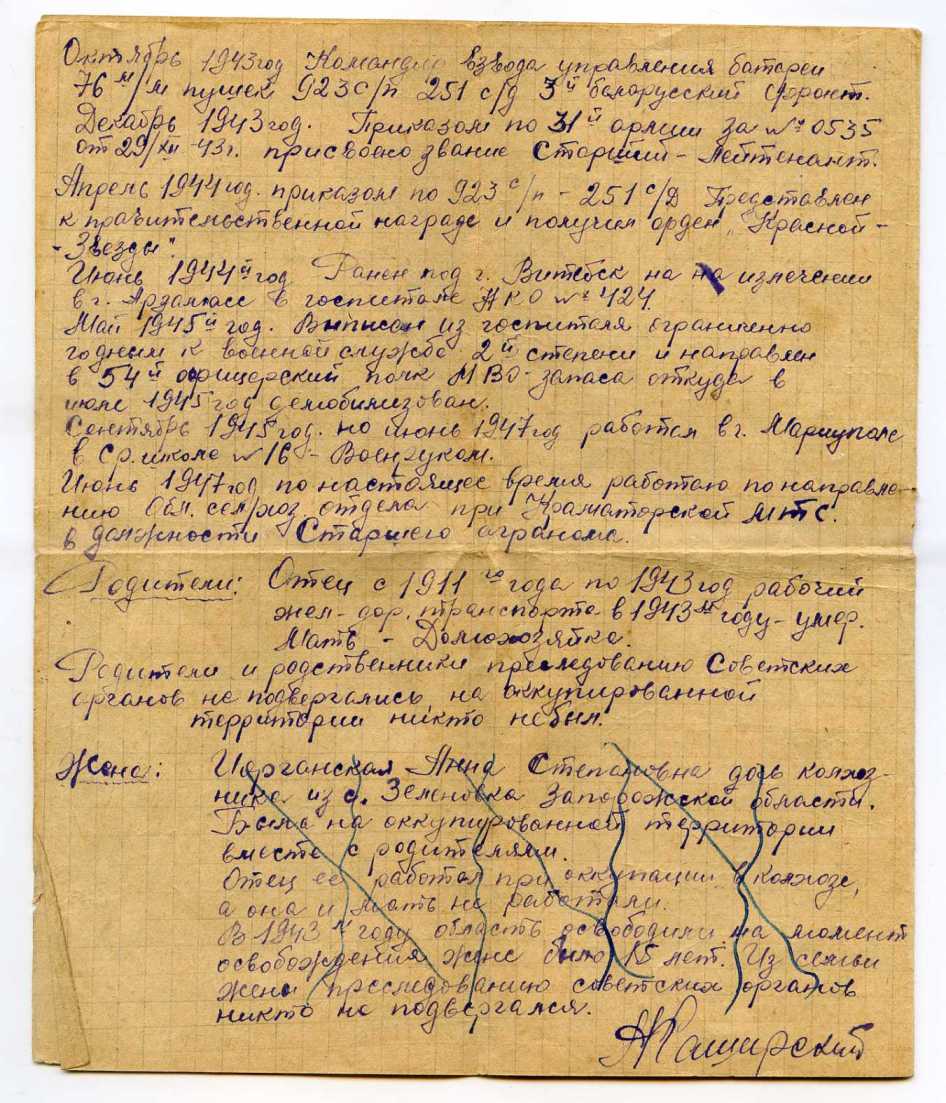 Октябрь 1943 год Командир взвода управления батареи
76 м/м пушек 923 с/п 251 с/д 3й белорусский фронт.
Декабрь 1943 год. Приказом по 31й армии за № 0535
от 29/XII-43г. присвоено звание Старший-лейтенант.
Апрель 1944 год. приказом по 923 с/п - 251 с/д Представлен
к правительственной награде и получил орден „Красной-
- Звезды".
Июнь 1944й год Ранен под г. Витебск на на излечении
в г. Арзамасе в госпитале НКО № 424
Май 1945й год. Выписан из госпиталя ограниченно
годным к военной службе 2й степени и направлен
в 54й офицерский полк МВО-запаса откуда в
июле 1945 год демобилизован.
Сентябрь 1945 год. по июнь 1947 год работал в г. Мариуполе
в ср. школе № 16 - Военруком.
Июнь 1947 год по настоящее время работаю по направле-
нию Обл. сельхоз отдела при Краматорской МТС.
в должности Старшего агранома.
Родители: Отец с 1911го года по 1943 год рабочий
жел-дор. транспорта в 1943м году-умер.
Мать - Домохозяйка.
Родители и родственники преследованию Советских
органов не подвергались на оккупированной
территории никто небыл.
Жена: Анна Степановна дочь колхоз-
ника из с. Зеленовка Запорожской области.
Была на оккупированной территории
вместе с родителями.
Отец её работал при оккупации в колхозе,
а она и мать не работали.
В 1943м году область освободили на момент
освобождения жене было 15 лет. Из семьи
жены преследованию советских органов
никто не подвергался.